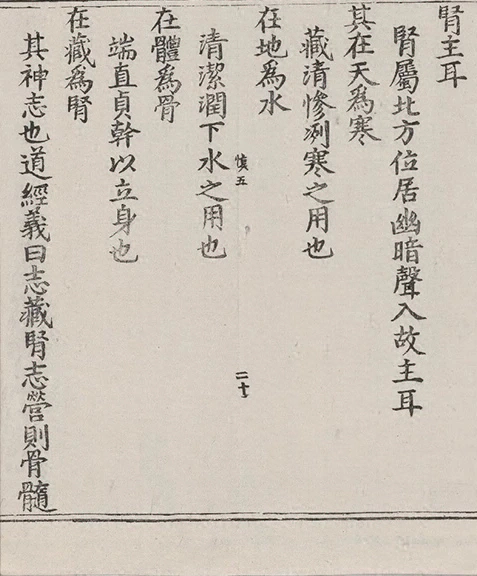 腎主耳
腎屬北方位居幽暗聲入故主耳
其在天為寒
藏清慘冽寒之用也
在地為水
清潔潤下水之用也
慎五
二十
在體為骨
端直貞幹以立身也
在藏為腎
其神志也道經義曰志藏腎志營則骨髓